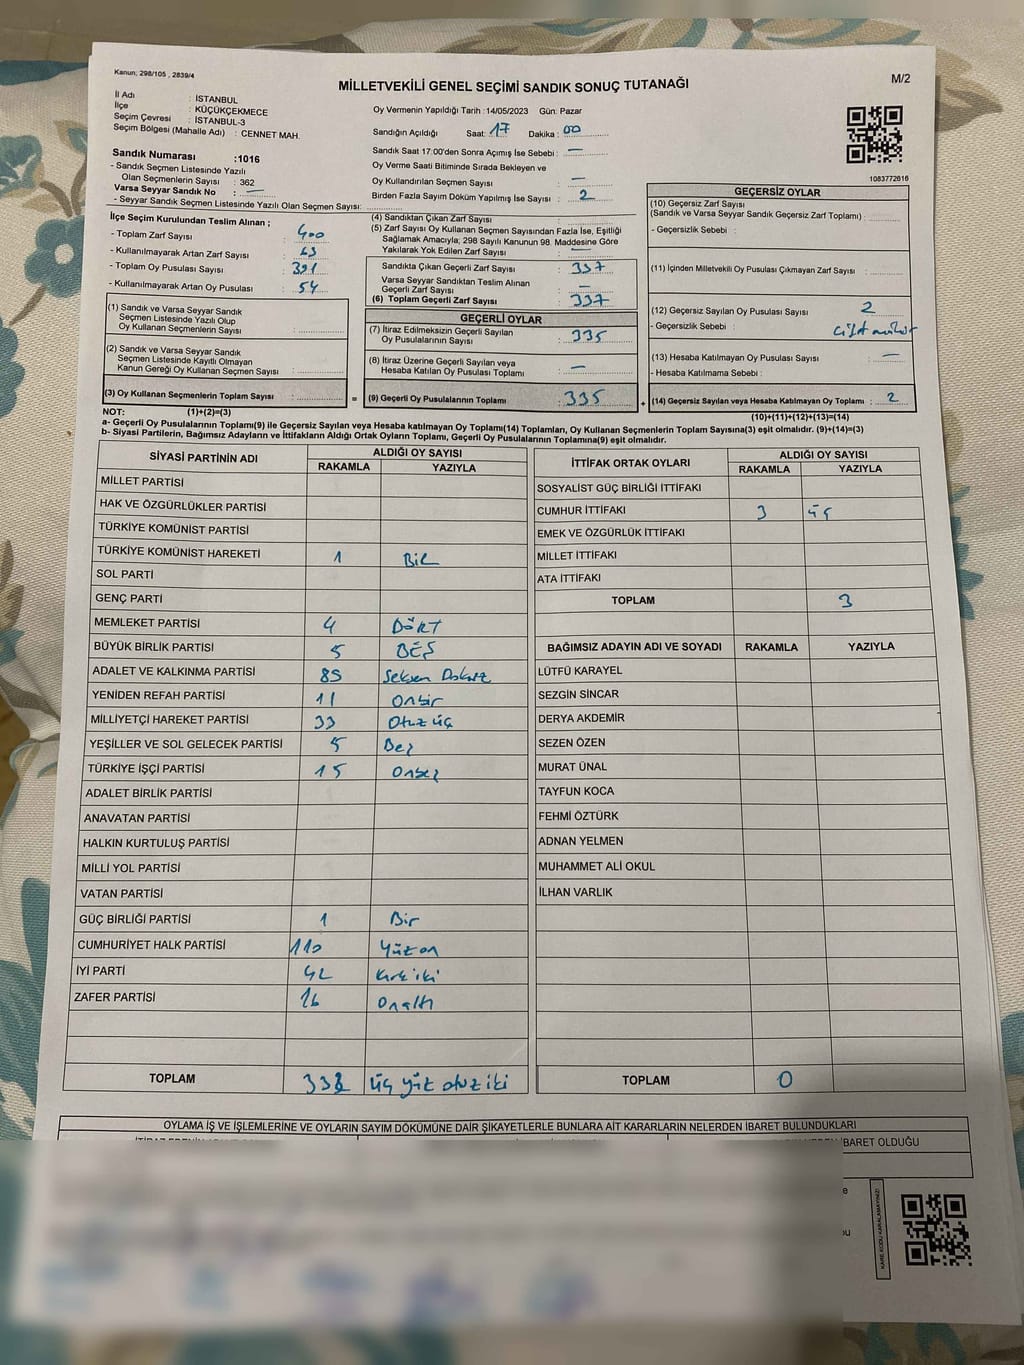 Kanun; 298/105 , 2839/4
MİLLETVEKİLİ GENEL SEÇİMİ SANDIK SONUÇ TUTANAĞI
M/2
İl Adı : İSTANBUL
İlçe : KÜÇÜKÇEKMECE
Seçim Çevresi : İSTANBUL-3
Seçim Bölgesi (Mahalle Adı) : CENNET MAH.
Sandık Numarası :1016
- Sandık Seçmen Listesinde Yazılı
Olan Seçmenlerin Sayısı : 362
Varsa Seyyar Sandık No : —
- Seyyar Sandık Seçmen Listesinde Yazılı Olan Seçmen Sayısı:
Oy Vermenin Yapıldığı Tarih :14/05/2023 Gün: Pazar
Sandığın Açıldığı Saat: 17 Dakika : 00
Sandık Saat 17:00'den Sonra Açımış İse Sebebi : —
Oy Verme Saati Bitiminde Sırada Bekleyen ve
Oy Kullandırılan Seçmen Sayısı : —
Birden Fazla Sayım Döküm Yapılmış İse Sayısı : 2
1083772616
İlçe Seçim Kurulundan Teslim Alınan ;
- Toplam Zarf Sayısı : 400
- Kullanılmayarak Artan Zarf Sayısı : 63
- Toplam Oy Pusulası Sayısı : 391
- Kullanılmayarak Artan Oy Pusulası : 54
(1) Sandık ve Varsa Seyyar Sandık
Seçmen Listesinde Yazılı Olup
Oy Kullanan Seçmenlerin Sayısı :
(2) Sandık ve Varsa Seyyar Sandık
Seçmen Listesinde Kayıtlı Olmayan
Kanun Gereği Oy Kullanan Seçmen Sayısı :
(3) Oy Kullanan Seçmenlerin Toplam Sayısı :
(4) Sandıktan Çıkan Zarf Sayısı :
(5) Zarf Sayısı Oy Kullanan Seçmen Sayısından Fazla İse, Eşitliği
Sağlamak Amacıyla; 298 Sayılı Kanunun 98. Maddesine Göre
Yakılarak Yok Edilen Zarf Sayısı : —
Sandıkta Çıkan Geçerli Zarf Sayısı : 337
Varsa Seyyar Sandıktan Teslim Alınan
Geçerli Zarf Sayısı : —
(6) Toplam Geçerli Zarf Sayısı : 337
GEÇERLİ OYLAR
(7) İtiraz Edilmeksizin Geçerli Sayılan
Oy Pusulalarının Sayısı : 335
(8) İtiraz Üzerine Geçerli Sayılan veya
Hesaba Katılan Oy Pusulası Toplamı : —
= (9) Geçerli Oy Pusulalarının Toplamı : 335
GEÇERSİZ OYLAR
(10) Geçersiz Zarf Sayısı
(Sandık ve Varsa Seyyar Sandık Geçersiz Zarf Toplamı) :
- Geçersizlik Sebebi :
(11) İçinden Milletvekili Oy Pusulası Çıkmayan Zarf Sayısı :
(12) Geçersiz Sayılan Oy Pusulası Sayısı : 2
- Geçersizlik Sebebi : Çift mühür
(13) Hesaba Katılmayan Oy Pusulası Sayısı : —
- Hesaba Katılmama Sebebi :
+ (14) Geçersiz Sayılan veya Hesaba Katılmayan Oy Toplamı : 2
NOT: (1)+(2)=(3)
(10)+(11)+(12)+(13)=(14)
a- Geçerli Oy Pusulalarının Toplamı(9) ile Geçersiz Sayılan veya Hesaba katılmayan Oy Toplamı(14) Toplamları, Oy Kullanan Seçmenlerin Toplam Sayısına(3) eşit olmalıdır. (9)+(14)=(3)
b- Siyasi Partilerin, Bağımsız Adayların ve İttifakların Aldığı Ortak Oyların Toplamı, Geçerli Oy Pusulalarının Toplamına(9) eşit olmalıdır.
SİYASİ PARTİNİN ADI ALDIĞI OY SAYISI
RAKAMLA YAZIYLA
MİLLET PARTİSİ
HAK VE ÖZGÜRLÜKLER PARTİSİ
TÜRKİYE KOMÜNİST PARTİSİ
TÜRKİYE KOMÜNİST HAREKETİ 1 BİR
SOL PARTİ
GENÇ PARTİ
MEMLEKET PARTİSİ 4 DÖRT
BÜYÜK BİRLİK PARTİSİ 5 BEŞ
ADALET VE KALKINMA PARTİSİ 89 Seksen Dokuz
YENİDEN REFAH PARTİSİ 11 Onbir
MİLLİYETÇİ HAREKET PARTİSİ 33 Otuz üç
YEŞİLLER VE SOL GELECEK PARTİSİ 5 Beş
TÜRKİYE İŞÇİ PARTİSİ 15 Onbeş
ADALET BİRLİK PARTİSİ
ANAVATAN PARTİSİ
HALKIN KURTULUŞ PARTİSİ
MİLLİ YOL PARTİSİ
VATAN PARTİSİ
GÜÇ BİRLİĞİ PARTİSİ 1 Bir
CUMHURİYET HALK PARTİSİ 110 Yüz on
İYİ PARTİ 42 Kırk iki
ZAFER PARTİSİ 16 Onaltı
TOPLAM 332 üç yüz otuz iki
İTTİFAK ORTAK OYLARI ALDIĞI OY SAYISI
RAKAMLA YAZIYLA
SOSYALİST GÜÇ BİRLİĞİ İTTİFAKI
CUMHUR İTTİFAKI 3 üç
EMEK VE ÖZGÜRLÜK İTTİFAKI
MİLLET İTTİFAKI
ATA İTTİFAKI
TOPLAM 3
BAĞIMSIZ ADAYIN ADI VE SOYADI RAKAMLA YAZIYLA
LÜTFÜ KARAYEL
SEZGİN SİNCAR
DERYA AKDEMİR
SEZEN ÖZEN
MURAT ÜNAL
TAYFUN KOCA
FEHMİ ÖZTÜRK
ADNAN YELMEN
MUHAMMET ALİ OKUL
İLHAN VARLIK
TOPLAM 0
OYLAMA İŞ VE İŞLEMLERİNE VE OYLARIN SAYIM DÖKÜMÜNE DAİR ŞİKAYETLERLE BUNLARA AİT KARARLARIN NELERDEN İBARET BULUNDUKLARI
İBARET OLDUĞU
KARE KODU KARALAMAYINIZ!